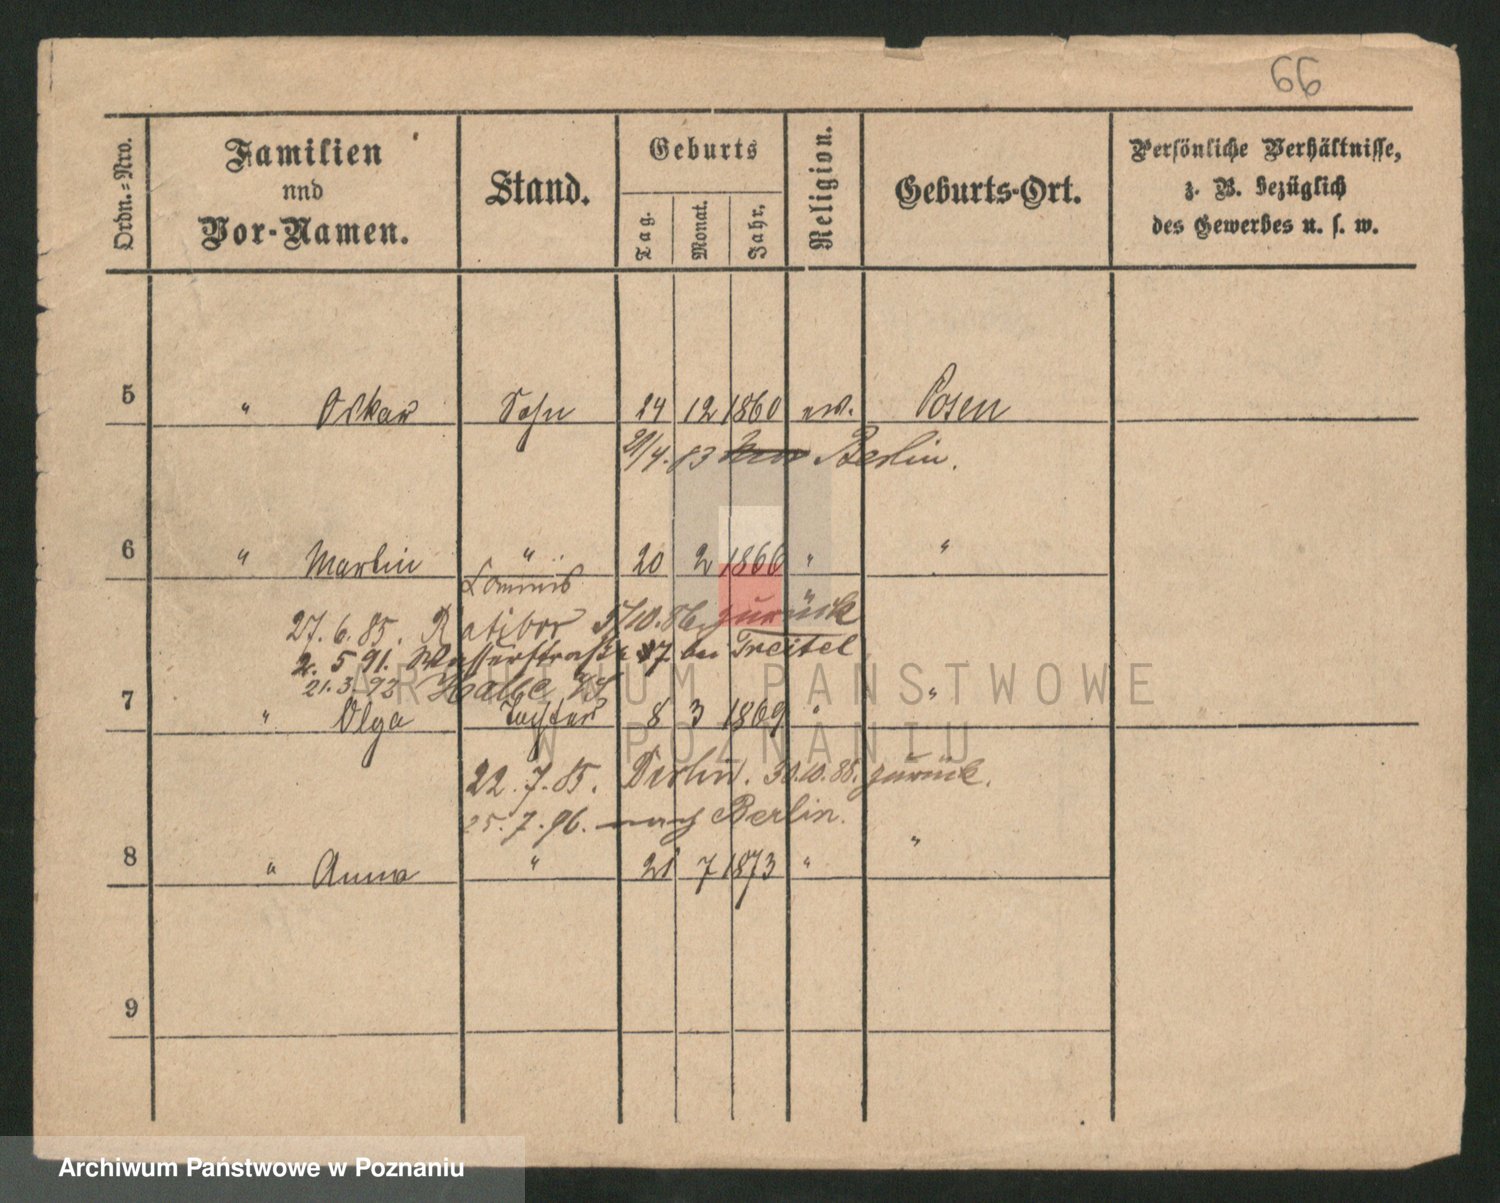 66
Ordn.=Nro.
Familien
nnd
Vor-Namen.
Stand.
Geburts
Tag.
Monat.
Jahr.
Religion.
Geburts-Ort.
Persönliche Verhältnisse,
z. B. bezüglich
des Gewerbes u. s. w.
5 " Oskar Sohn 24 12 1860 ev. Posen
29/4. 83 Berlin.
6 " Martin " 20 2 1866 " "
Commis
27.6.85. Ratibor 5/10.86. zurück
2. 5 91. Wasserstraße 17 bei Treitel
21.3.92 Halle
7 " Olga Tochter 8 3 1869 " "
22.7.85. Berlin. 30.10.88. zurück.
25.7.96. nach Berlin.
8 " Anna " 21 7 1873 " "
9
ARCHIWUM PAŃSTWOWE
W POZNANIU
Archiwum Państwowe w Poznaniu